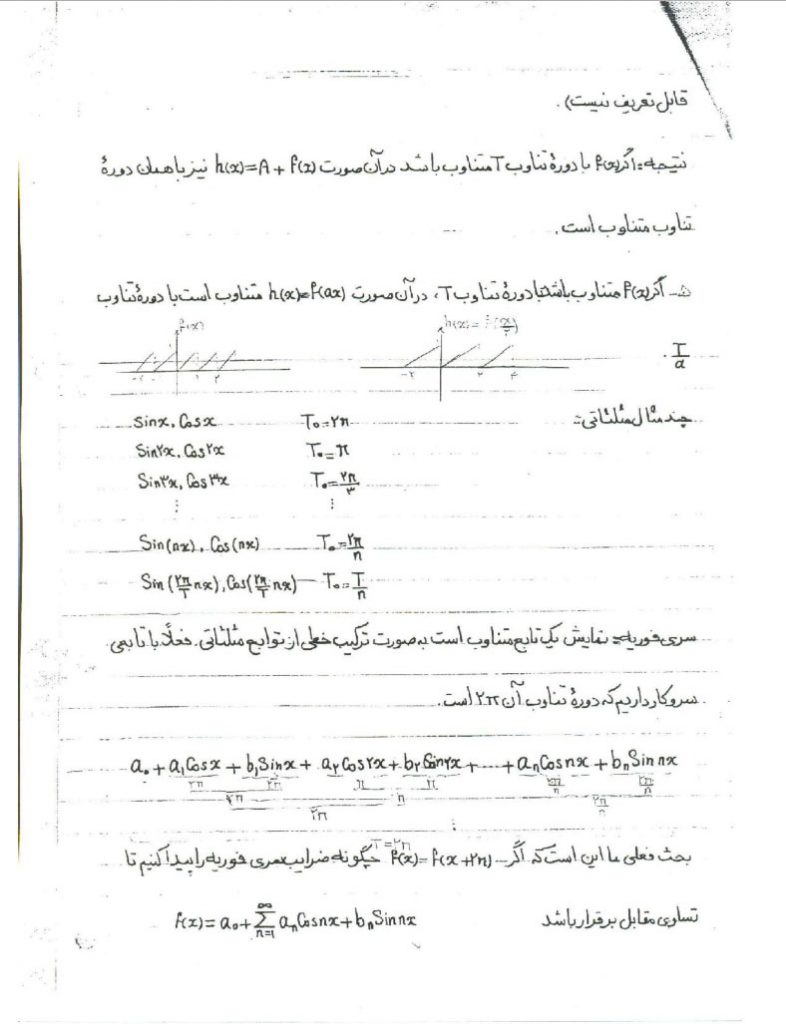 قابل تعریف نیست).
نتیجه: اگر f(x) با دورهٔ تناوب T متناوب باشد در آن صورت h(x)=A+f(x) نیز با همان دورهٔ
تناوب متناوب است.
۵- اگر f(x) متناوب باشد با دورهٔ تناوب T، در آن صورت h(x)=f(ax) متناوب است با دورهٔ تناوب
T/a .
f(x)
h(x)=f(x/۲)
-۲ -۱ ۱ ۲
-۲ ۲ ۴
چند مثال مثلثاتی:
Sinx, Cosx T₀=۲π
Sin۲x, Cos۲x T₀=π
Sin۳x, Cos۳x T₀=۲π/۳
⋮ ⋮
Sin(nx), Cos(nx) T₀=۲π/n
Sin(۲π/T nx), Cos(۲π/T nx) T₀=T/n
سری فوریه: نمایش یک تابع متناوب است به صورت ترکیب خطی از توابع مثلثاتی. فعلاً با تابعی
سروکار داریم که دورهٔ تناوب آن ۲π است.
a₀+a₁Cosx+b₁Sinx+a₂Cos۲x+b₂Sin۲x+...+aₙCosnx+bₙSinnx
۲π ۲π π π ۲π/n ۲π/n
۲π π ۲π/n
۲π
⋮
T=۲π
بحث فعلی ما این است که اگر f(x)=f(x+۲π) چگونه ضرایب سری فوریه را پیدا کنیم تا
تساوی مقابل برقرار باشد f(x)=a₀+∑ₙ₌₁^∞ aₙCosnx+bₙSinnx